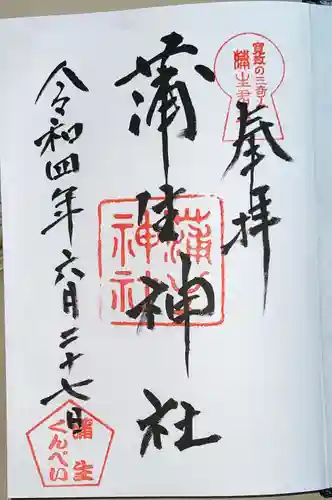 寛政の三奇人
蒲生君平
奉拝
蒲生神社
蒲生
神社
令和四年六月二十七日
蒲生
くんぺい